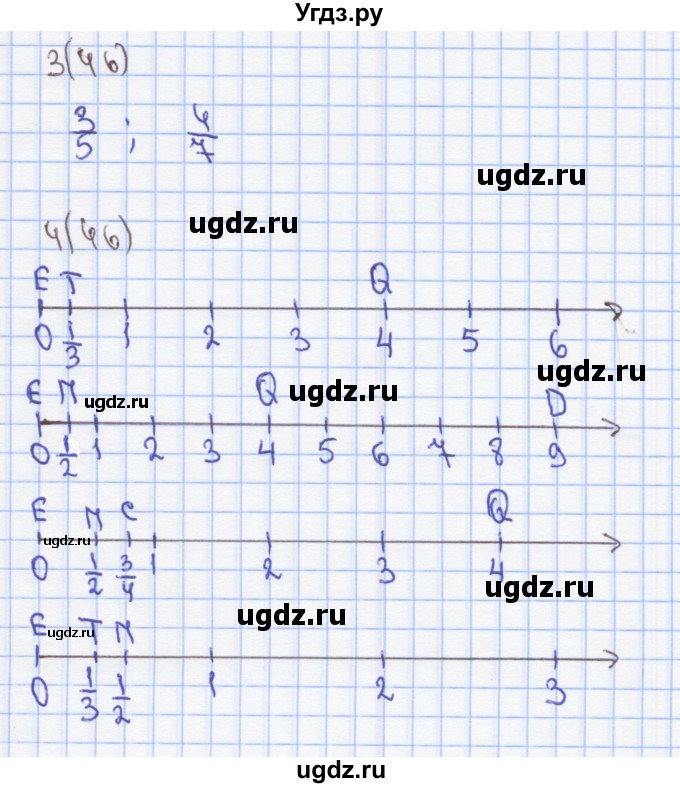 Угдз.ру
3(46)
3/5 ; 4/7
ugdz.ru
4(46)
ugdz.ru
E T Q
0 1/3 1 2 3 4 5 6
ugdz.ru
E П ugdz.ru Q ugdz.ru D
0 1/2 1 2 3 4 5 6 7 8 9
E П C Q
ugdz.ru
0 1/2 3/4 1 2 3 4
ugdz.ru
ugdz.ru
E ugdz.ru T П
0 1/3 1/2 1 2 3
ugdz.ru